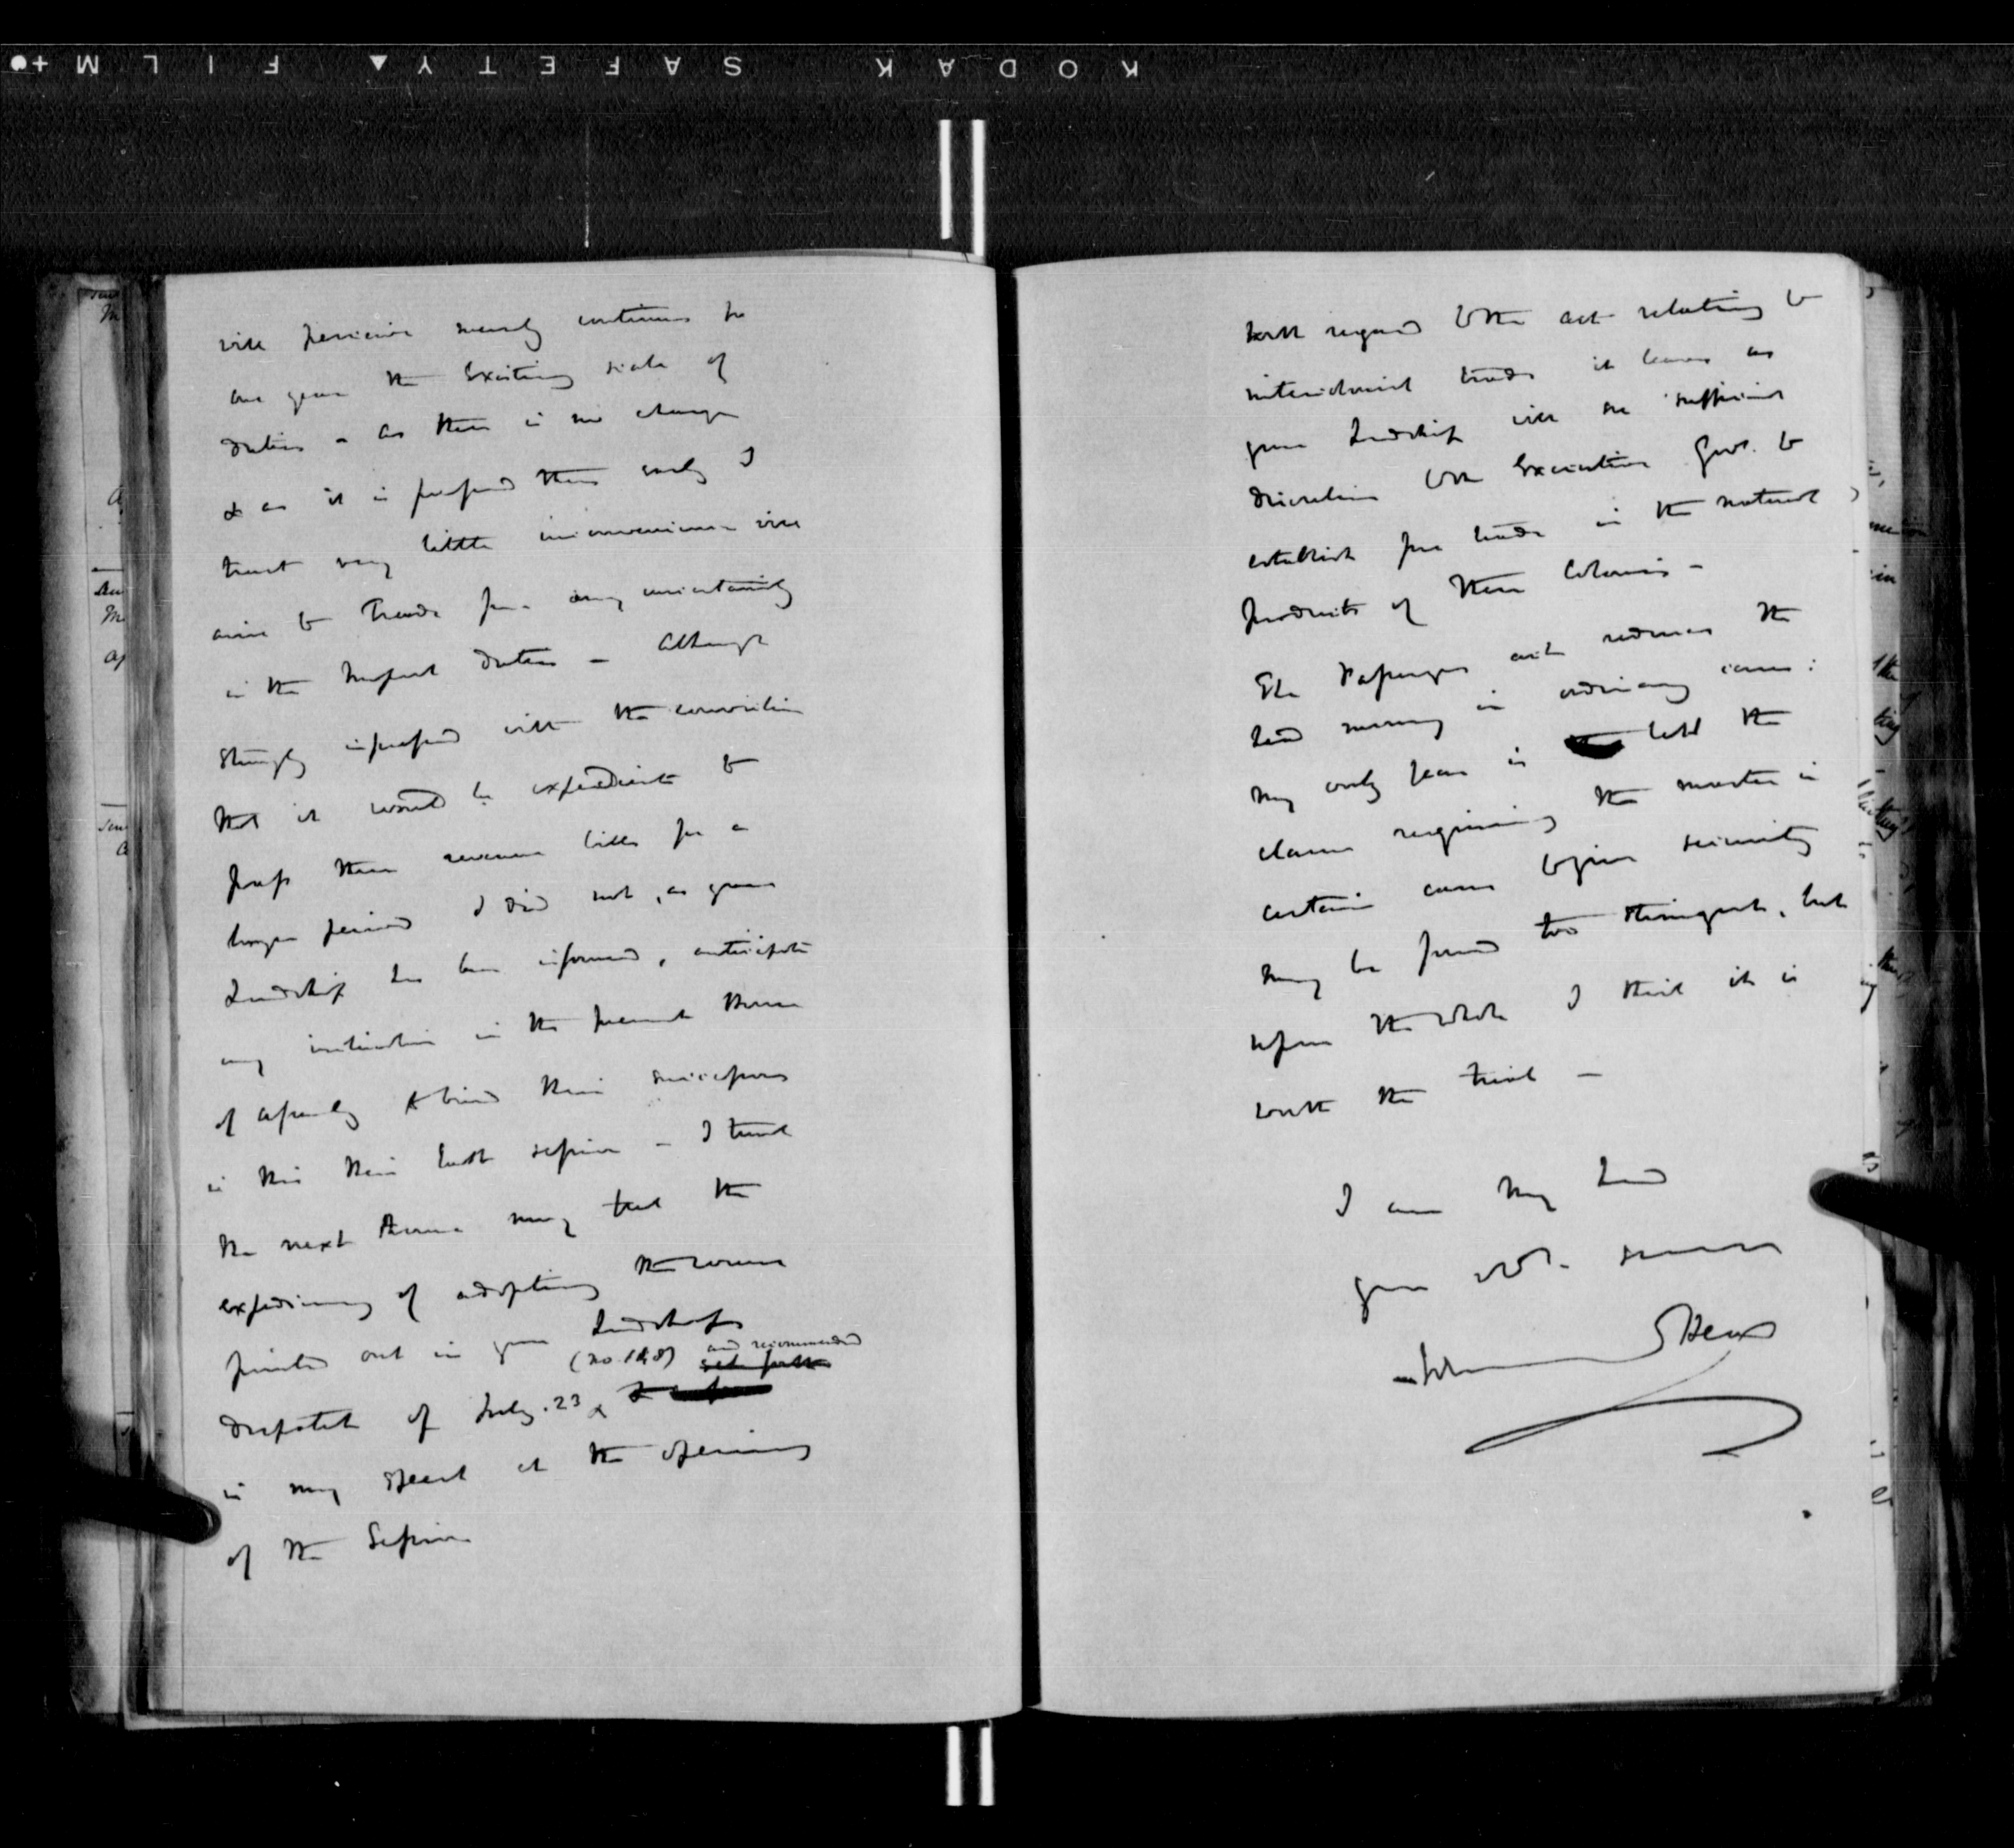 KODAK SAFETY FILM
will perceive merely continues for
one year the existing scale of
duties - as there is no change
& as it is passed thus early I
trust very little inconvenience will
arise to Trade from any uncertainty
in the Import duties - Although
strongly impressed with the conviction
that it would be expedient to
pass these revenue bills for a
longer period I did not, as your
Lordship has been informed, anticipate
any inclination in the present House
of Assembly to bind their successors
in this their last session - I trust
the next House may feel the
expediency of adopting the course
pointed out in your Lordship's
(No. 198) and recommended
set forth
despatch of July 23 &
in my speech at the opening
of the Session
With regard to the act relating to
intercolonial trade it leaves as
your Lordship will see sufficient
discretion to the Executive Govt. to
establish free trade in the natural
products of these Colonies -
The Passenger act reduces the
head money in ordinary cases:
my only fear is lest the
clause requiring the master in
certain cases to give security
may be found too stringent, but
upon the whole I think it is
worth the trial -
I am My Lord
your obt. servant
Head